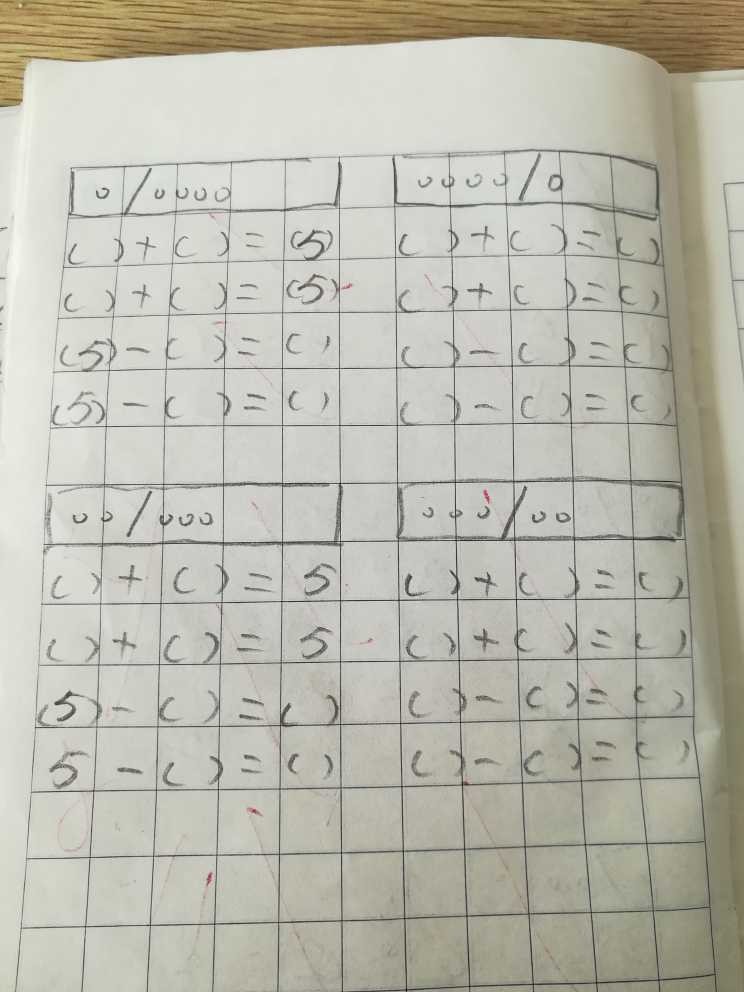 o / oooo
( ) + ( ) = (5)
( ) + ( ) = (5)
(5) - ( ) = ( )
(5) - ( ) = ( )
oooo / o
( ) + ( ) = ( )
( ) + ( ) = ( )
( ) - ( ) = ( )
( ) - ( ) = ( )
oo / ooo
( ) + ( ) = 5
( ) + ( ) = 5
(5) - ( ) = ( )
5 - ( ) = ( )
ooo / oo
( ) + ( ) = ( )
( ) + ( ) = ( )
( ) - ( ) = ( )
( ) - ( ) = ( )